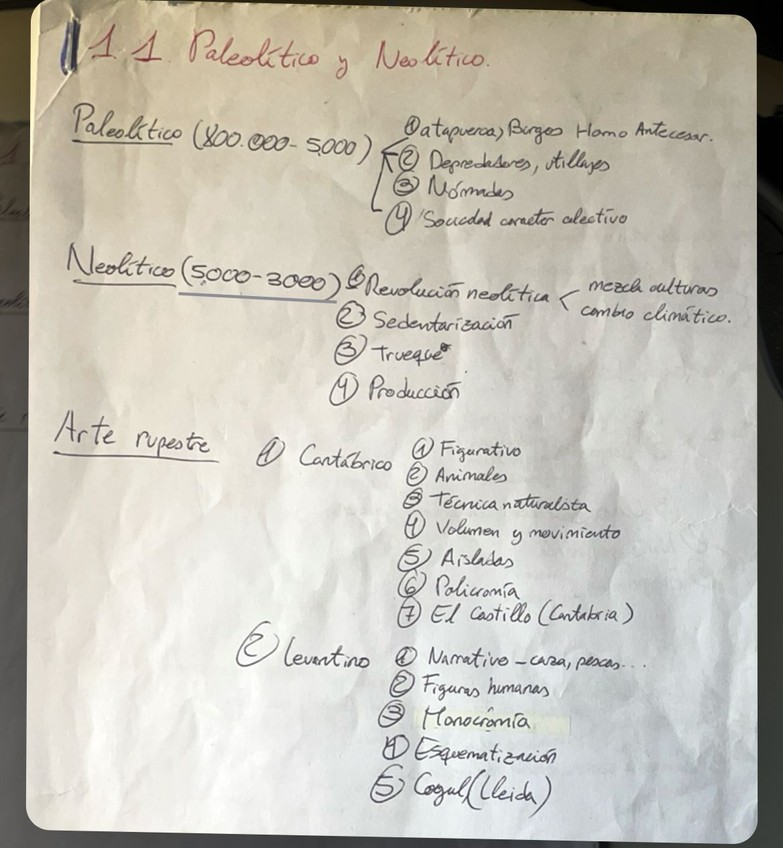 1.1. Paleolítico y Neolítico.
Paleolítico (800.000-5,000) ① atapuerca, Burgos Homo Antecesar.
② Depredadores, utillajes
③ Nómadas
④ Sociedad caracter colectivo
Neolítico (5,000-3000) ① Revolución neolítica < mezcla culturas
cambio climático.
② Sedentarización
③ Trueque
④ Producción
Arte rupestre ① Cantábrico ① Figurativo
② Animales
③ Técnica naturalista
④ Volumen y movimiento
⑤ Aisladas
⑥ Policromía
⑦ El Castillo (Cantabria)
② Levantino ① Narrativo - caza, pescas...
② Figuras humanas
③ Monocromía
④ Esquematización
⑤ Cogul (Lleida)